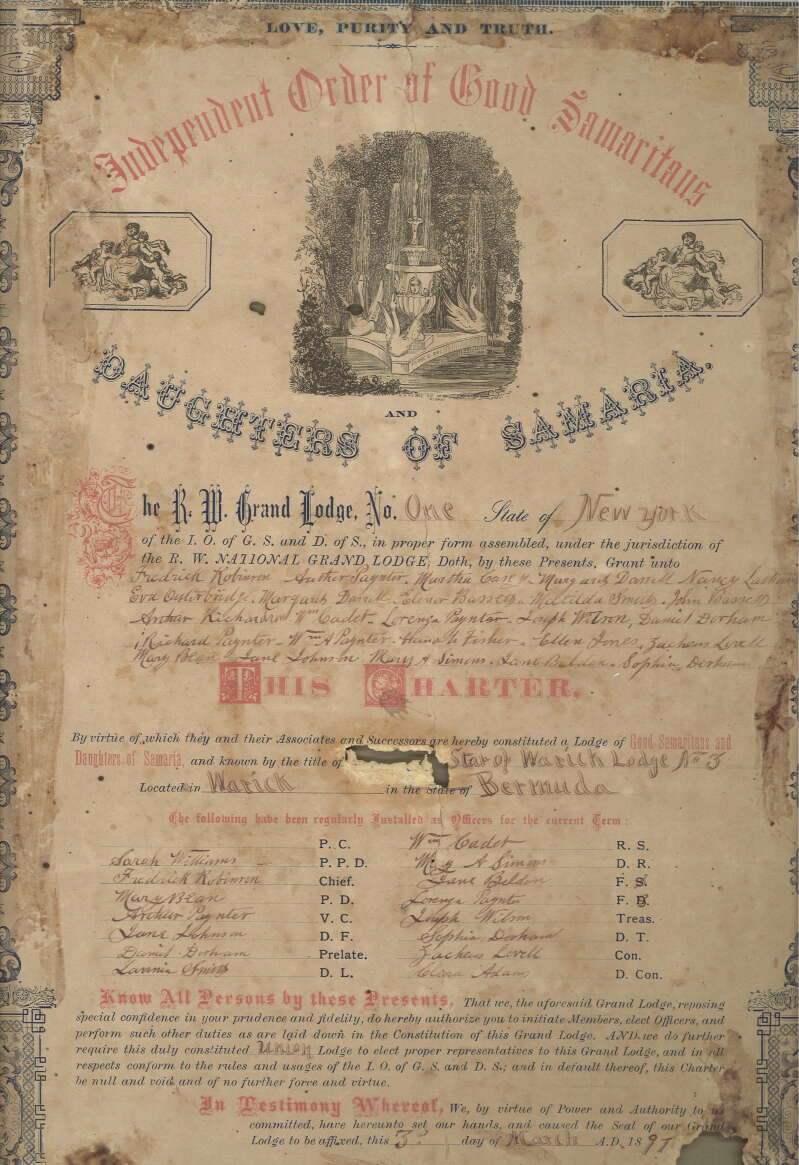 LOVE, PURITY AND TRUTH.
Independent Order of Good Samaritans
AND
DAUGHTERS OF SAMARIA.
The R. W. Grand Lodge, No. One State of New York
of the I. O. of G. S. and D. of S., in proper form assembled, under the jurisdiction of
the R. W. NATIONAL GRAND LODGE, Doth, by these Presents, Grant unto
Fredrick Robinson Arther Paynter, Martha Cann Margaret Darrell Nancy
Eva Outerbridge, Margaret Darrell Elenor Bassett Matilda Smith John Bassett
Arthur Richardson Wm Cadet Lorenza Paynter Joseph Wilson, Daniel Dorham
Richard Paynter Wm A Paynter Hannah Fisher Ellen Jones, Zacheus Lovell
Mary Bean Jane Johnson Mary A Simons Jane Beldon Sophia, Dorham
THIS CHARTER.
By virtue of which they and their Associates and Successors are hereby constituted a Lodge of Good Samaritans and
Daughters of Samaria, and known by the title of Star of Warick Lodge No 3
Located in Warick in the State of Bermuda
The following have been regularly Installed as Officers for the current Term:
P. C. Wm Cadet R. S.
Sarah Williams P. P. D. Mary A Simons D. R.
Fredrick Robinson Chief. Jane Beldon F. S.
Mary Bean P. D. Lorenza Paynter F. D.
Archer Paynter V. C. Joseph Wilson Treas.
Jane Johnson D. F. Sophia Dorham D. T.
Daniel Dorham Prelate. Zacheus Lovell Con.
Lavinia Smith D. L. Clara Adams D. Con.
Know All Persons by these Presents, That we, the aforesaid Grand Lodge, reposing
special confidence in your prudence and fidelity, do hereby authorize you to initiate Members, elect Officers, and
perform such other duties as are laid down in the Constitution of this Grand Lodge. AND we do further
require this duly constituted Union Lodge to elect proper representatives to this Grand Lodge, and in all
respects conform to the rules and usages of the I. O. of G. S. and D. S.; and in default thereof, this Charter
be null and void and of no further force and virtue.
In Testimony Whereof, We, by virtue of Power and Authority to us
committed, have hereunto set our hands, and caused the Seal of our Grand
Lodge to be affixed, this 3 day of March A.D. 1897